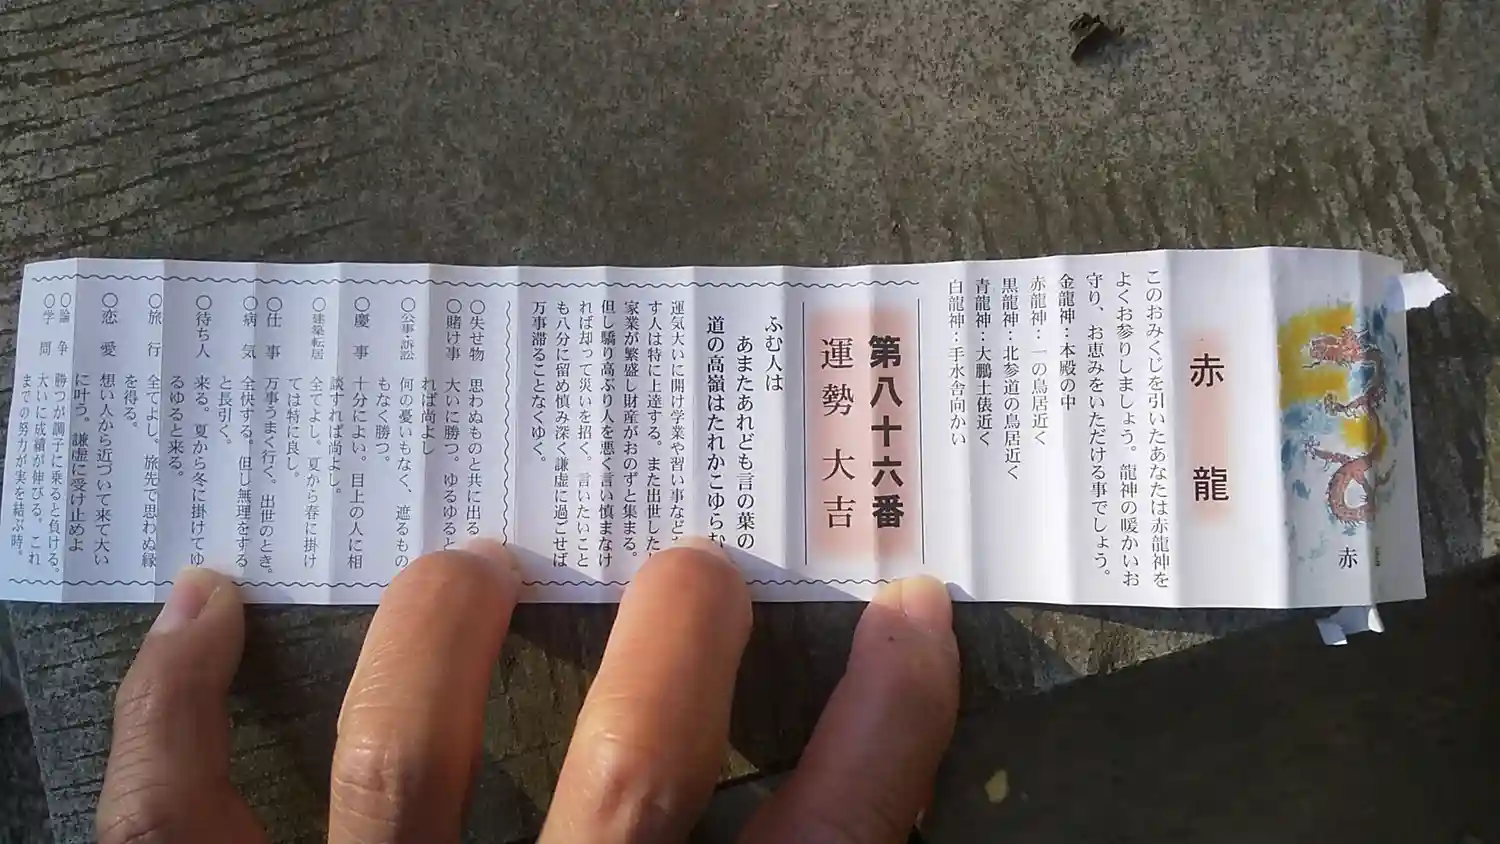 赤
赤龍
このおみくじを引いたあなたは赤龍神を
よくお参りしましょう。龍神の暖かいお
守り、お恵みをいただける事でしょう。
金龍神：本殿の中
赤龍神：一の鳥居近く
黒龍神：北参道の鳥居近く
青龍神：大鵬土俵近く
白龍神：手水舎向かい
第八十六番
運勢 大吉
あまたあれども言の葉の
ふむ人は
道の高嶺はたれかこゆらむ
運気大いに開け学業や習い事など
す人は特に上達する。また出世した
家業が繁盛し財産がおのずと集まる。
但し驕り高ぶり人を悪く言い慎まなけ
れば却って災いを招く。言いたいこと
も八分に留め慎み深く謙虚に過ごせば
万事滞ることなくゆく。
○失せ物 思わぬものと共に出る
○賭け事 大いに勝つ。ゆるゆると
れば尚よし
○公事訴訟 何の憂いもなく、遮るもの
もなく勝つ。
○慶事 十分によい。目上の人に相
談すれば尚よし。
○建築転居 全てよし。夏から春に掛け
ては特に良し。
○仕事 万事うまく行く。出世のとき。
○病気 全快する。但し無理をする
と長引く。
○待ち人 来る。夏から冬に掛けてゆ
るゆると来る。
○旅行 全てよし。旅先で思わぬ縁
を得る。
○恋愛 想い人から近づいて来て大い
に叶う。謙虚に受け止めよ
○論争 勝つが調子に乗ると負ける。
○学問 大いに成績が伸びる。これ
までの努力が実を結ぶ時。